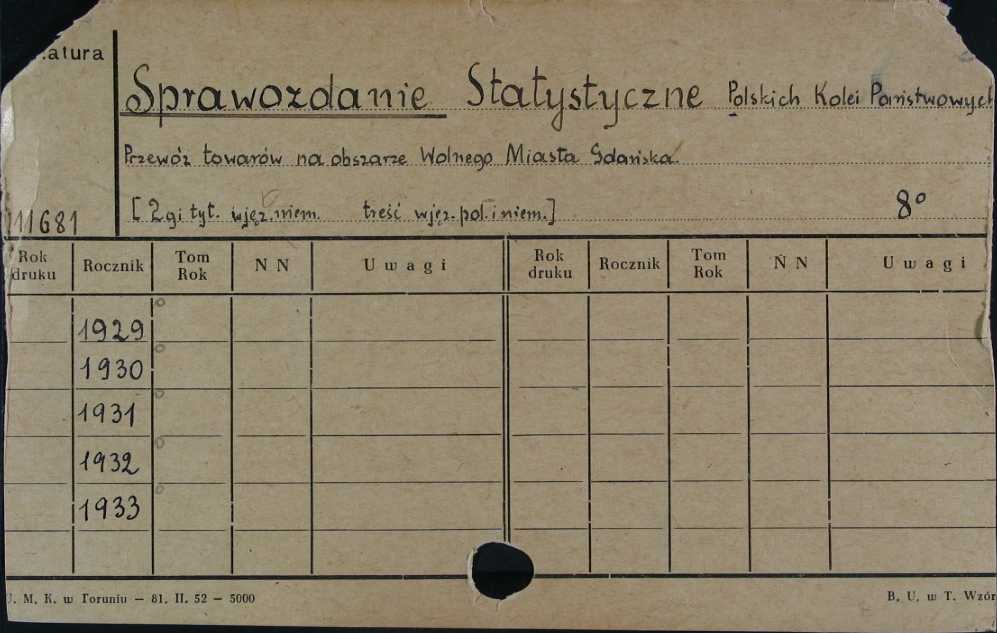 atura
Sprawozdanie Statystyczne Polskich Kolei Państwowych
Przewóz towarów na obszarze Wolnego Miasta Gdańska.
[2gi tyt. w jęz. niem. treść w jęz. pol. i niem.] 8°
111681
Rok druku Rocznik Tom Rok N N Uwagi Rok druku Rocznik Tom Rok N N Uwagi
1929
1930
1931
1932
1933
U. M. K. w Toruniu — 81. II. 52 — 5000 B. U. w T. Wzór